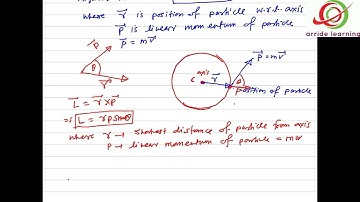 arride learning
where r⃗ is position of particle w.r.t. axis
P⃗ is linear momentum of particle
P⃗ = mv⃗
P⃗
θ
r⃗
axis
C
r⃗
θ
P⃗ = mv⃗
position of particle
L⃗ = r⃗ × P⃗
⇒ L = rp sinθ
where r → shortest distance of particle from axis
P → linear momentum of particle = mv